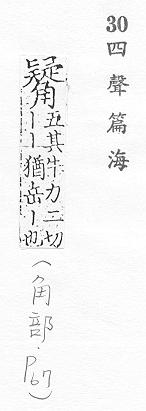 30四聲篇海
五其牛力二切
丨丨猶岳丨也
(角部．P67)